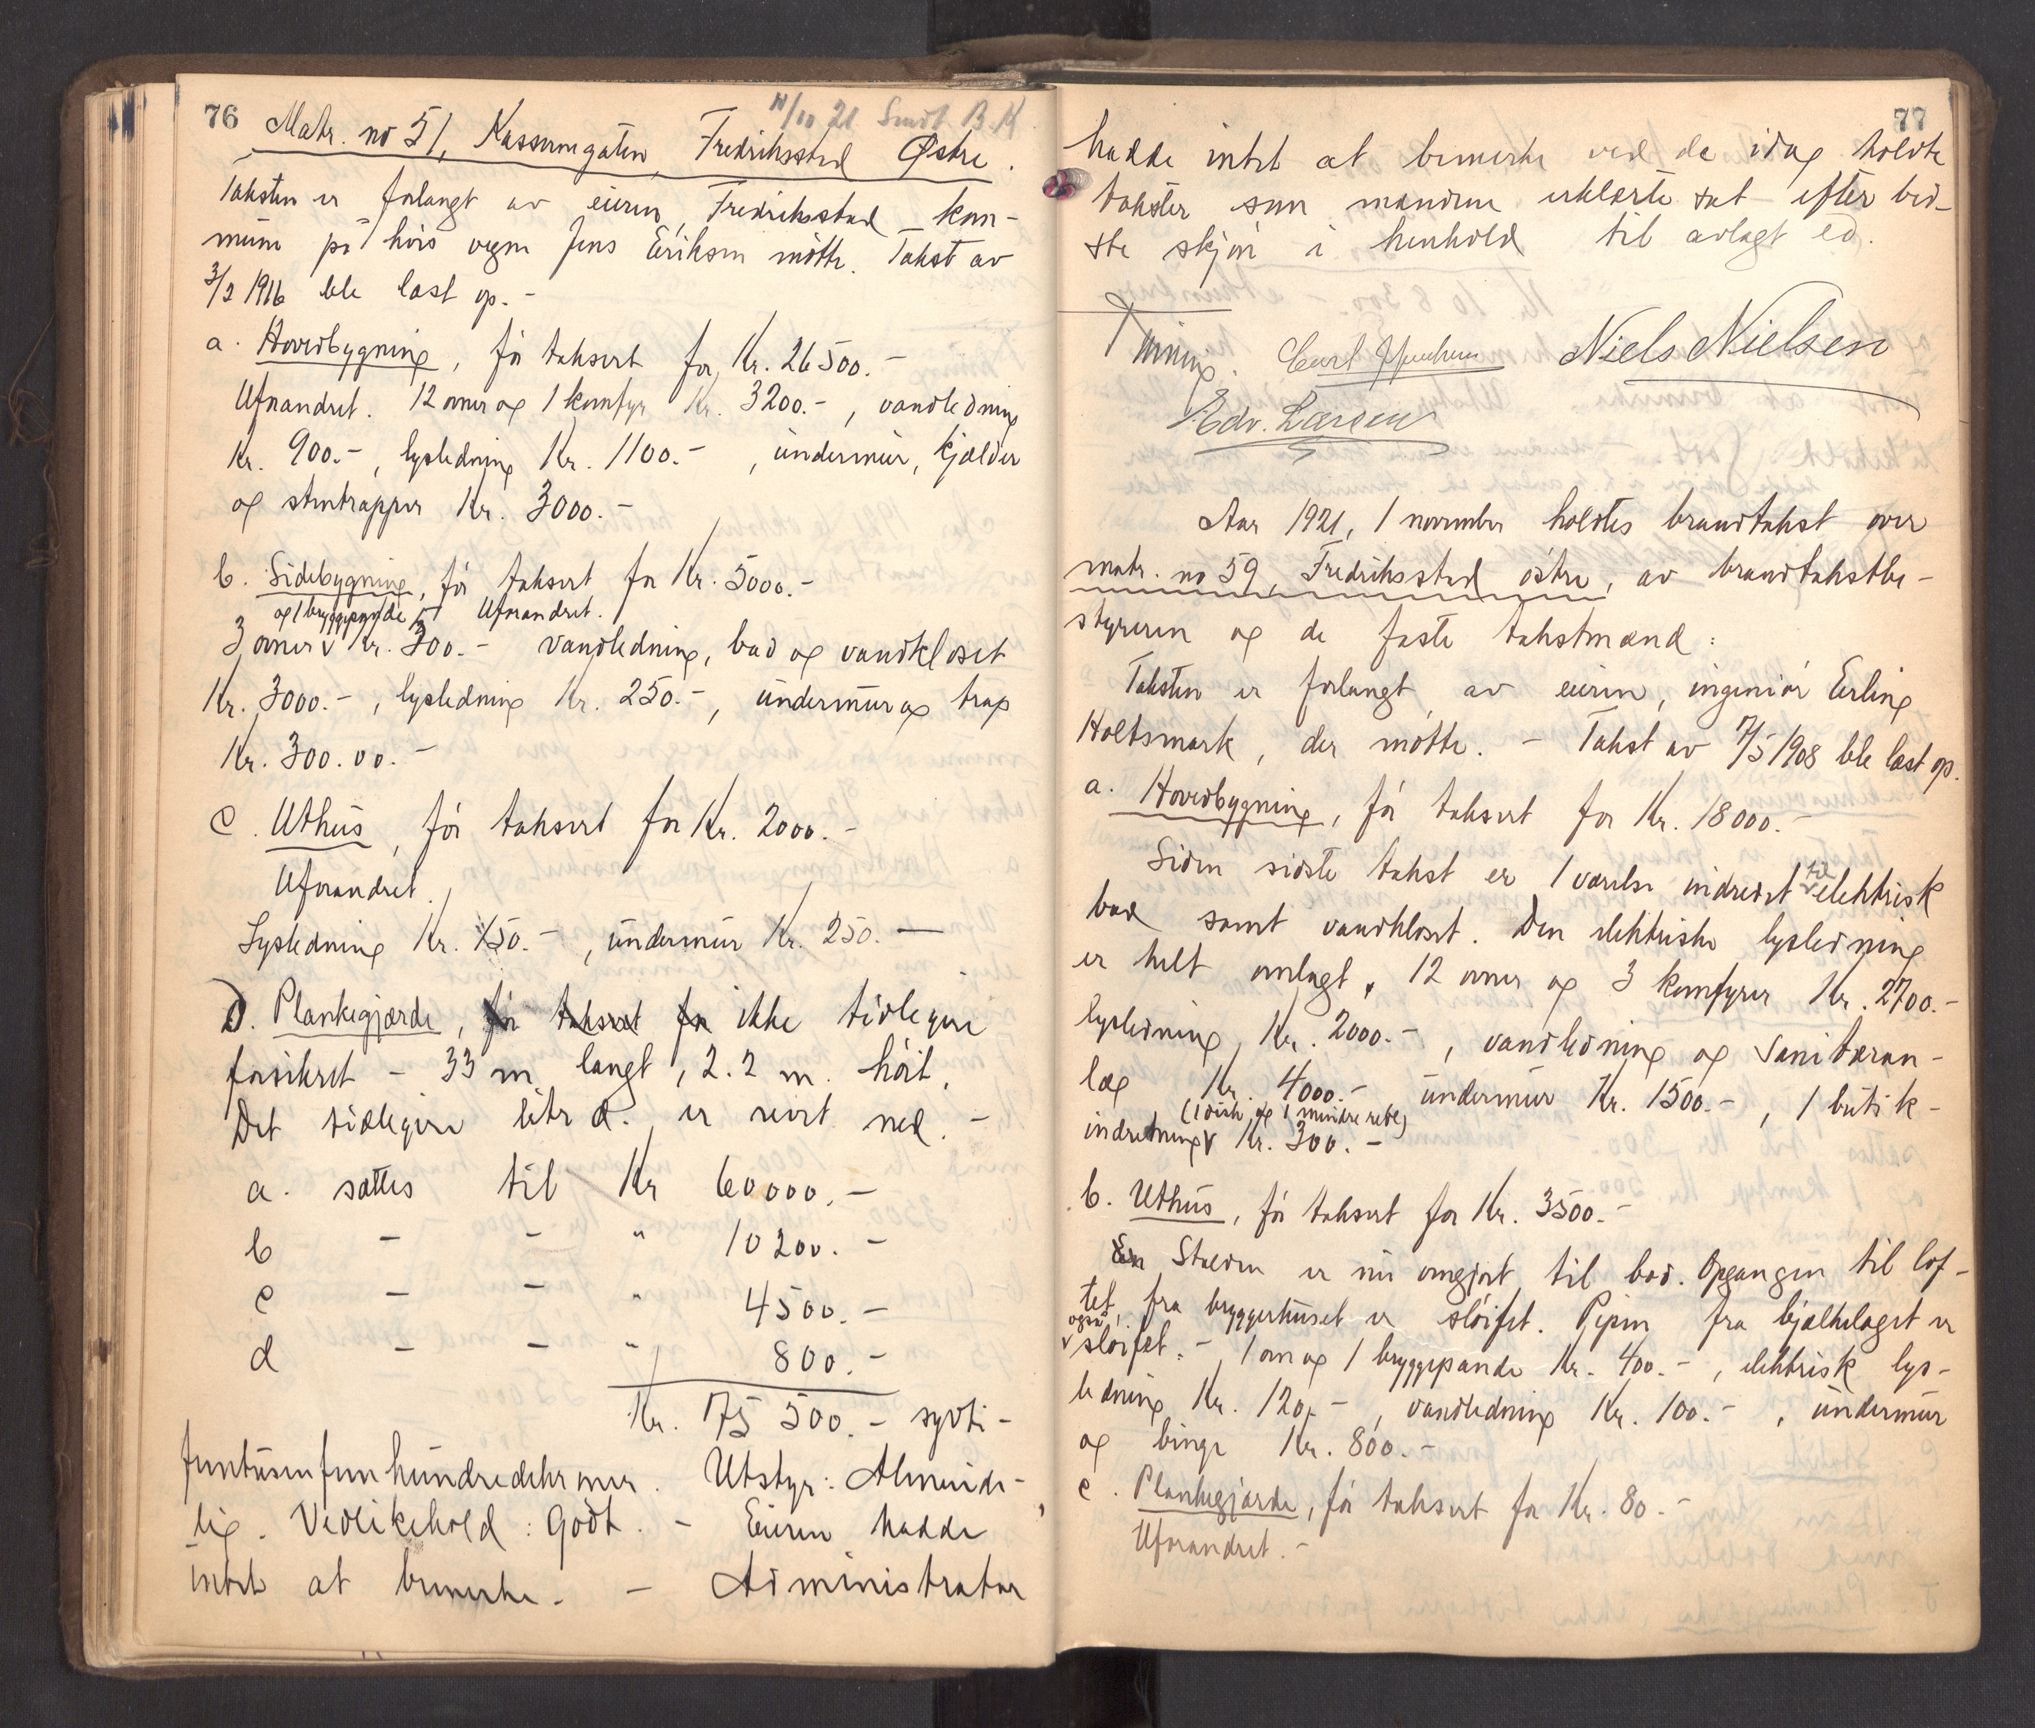 76
11/10 21 Sendt B.K
Matr. no 51, Kassumgaten, Fredriksstad Østre.
Taksten er forlangt av eieren, Fredriksstad kom-
mune på hvis vegne Jens Eriksen møtte. Takst av
3/2 1916 ble læst op. -
a. Hovedbygning, før taksert for Kr. 26500.-
Uforandret. 12 ovner og 1 komfyr Kr. 3200.-, vandledning
Kr. 900.-, lysledning Kr. 1100.-, undermur, kjælder
og stentrapper Kr. 3000.-
b. Sidebygning, før taksert for Kr. 5000.-
og 1 bryggepande Uforandret.
3 ovner v Kr. 300.- vandledning, bad og vandkloset
Kr. 3000.-, lysledning Kr. 250.-, undermur og trap
Kr. 300.00.-
c. Uthus, før taksert for Kr. 2000.-
Uforandret.
Lysledning Kr. 150.-, undermur Kr. 250.-
D. Plankegjærde, før taksert for ikke tidligere
forsikret - 33 m. langt, 2.2 m. høit.
Det tidligere litr d. er revet ned. -
a. sættes til Kr 60000.-
b - - " 10200.-
c - - " 4500.-
d - - " 800.-
Kr. 75 500.- sytti-
femtusenfemhundredekroner. Utstyr: Alminde-
lig. Vedlikehold: Godt. - Eieren hadde
intet at bemerke. - Administrator
77
hadde intet at bemerke ved de idag holdte
takster som mændene erklærte sat efter bed-
ste skjøn i henhold til avlagt ed.
Niels Nielsen
Edv. Larsen
Aar 1921, 1 november holdtes brandtakst over
matr. no 59, Fredriksstad østre, av brandtakstbe-
styreren og de faste takstmænd:
Taksten er forlangt av eieren, ingeniør Erling
Holtsmark, der møtte. - Takst av 7/5 1908 ble læst op.
a. Hovedbygning, før taksert for Kr. 18000.-
Siden sidste takst er 1 værelse indredet v elektrisk
til
bad samt vandkloset. Den elektriske lysledning
er helt omlagt, 12 ovner og 3 komfyrer Kr. 2700.-
lysledning, Kr. 2000.-, vandledning og sanitæran-
læg Kr. 4000.- undermur Kr. 1500.-, 1 butik-
(1 disk og 1 mindre reol)
indretning v Kr. 300.-
b. Uthus, før taksert for Kr. 3500.-
Stalden er nu omgjort til bod. Opgangen til lof-
tet, fra bryggerhuset er sløifet. Pipen fra bjælkelaget er
også
v sløifet.- 1 ovn og 1 bryggepande Kr. 400.-, elektrisk lys-
ledning Kr. 120.-, vandledning Kr. 100.-, undermur
og binge Kr. 800.-
c. Plankegjærde, før taksert for Kr. 80.-
Uforandret.-